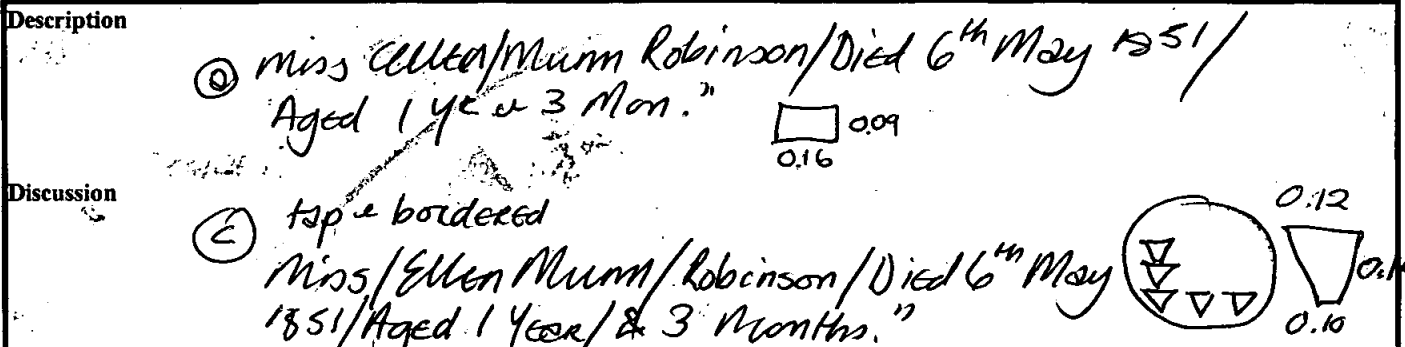 Description
ⓐ Miss Ellen/Munn Robinson/Died 6th May 1851/
Aged 1 yr & 3 Mon."
0.09
0.16
Discussion
ⓒ tap & bordered
0.12
Miss/Ellen Munn/Robinson/Died 6th May
1851/Aged 1 Year/& 3 Months."
0.10